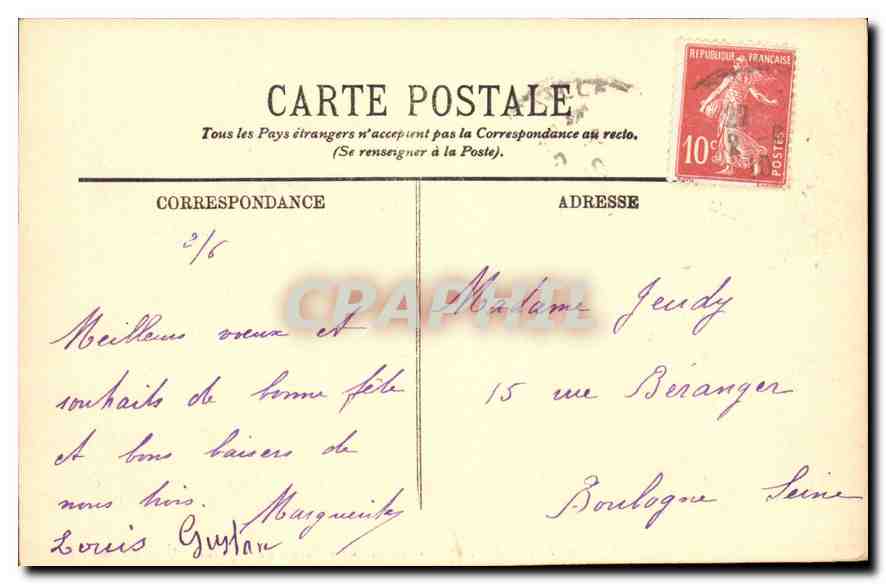 CARTE POSTALE
Tous les Pays étrangers n'acceptent pas la Correspondance au recto.
(Se renseigner à la Poste).
REPUBLIQUE FRANÇAISE
10c
POSTES
CORRESPONDANCE
2/6
Meilleurs voeux et
souhaits de bonne fête
et bons baisers de
nous trois. Marguerite
Louis Gustave
ADRESSE
Madame Jeudy
15 rue Béranger
Boulogne Seine
CPAPHIL